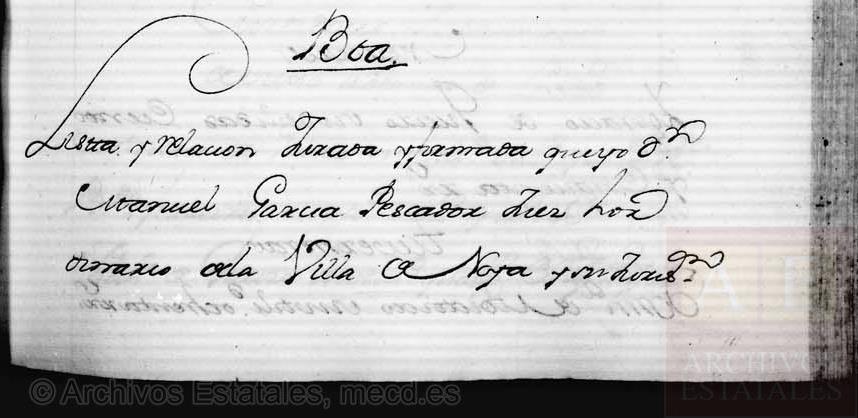 Boa.
Lista y relacion Jurada y firmada que yo Dn.
Manuel Garcia Pescador Juez hor
dinario de la Villa de Noya y su Juris.on
A E
ARCHIVOS
ESTATALES
© Archivos Estatales, mecd.es